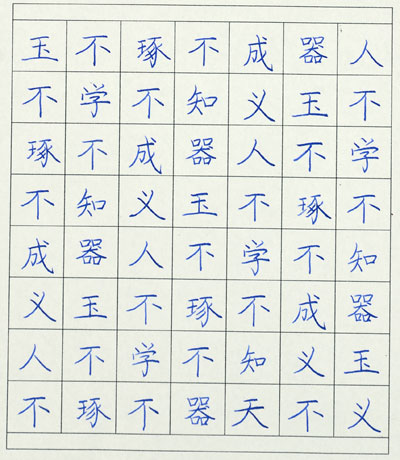 玉不琢不成器人
不学不知义玉不
琢不成器人不学
不知义玉不琢不
成器人不学不知
义玉不琢不成器
人不学不知义玉
不琢不器天不义